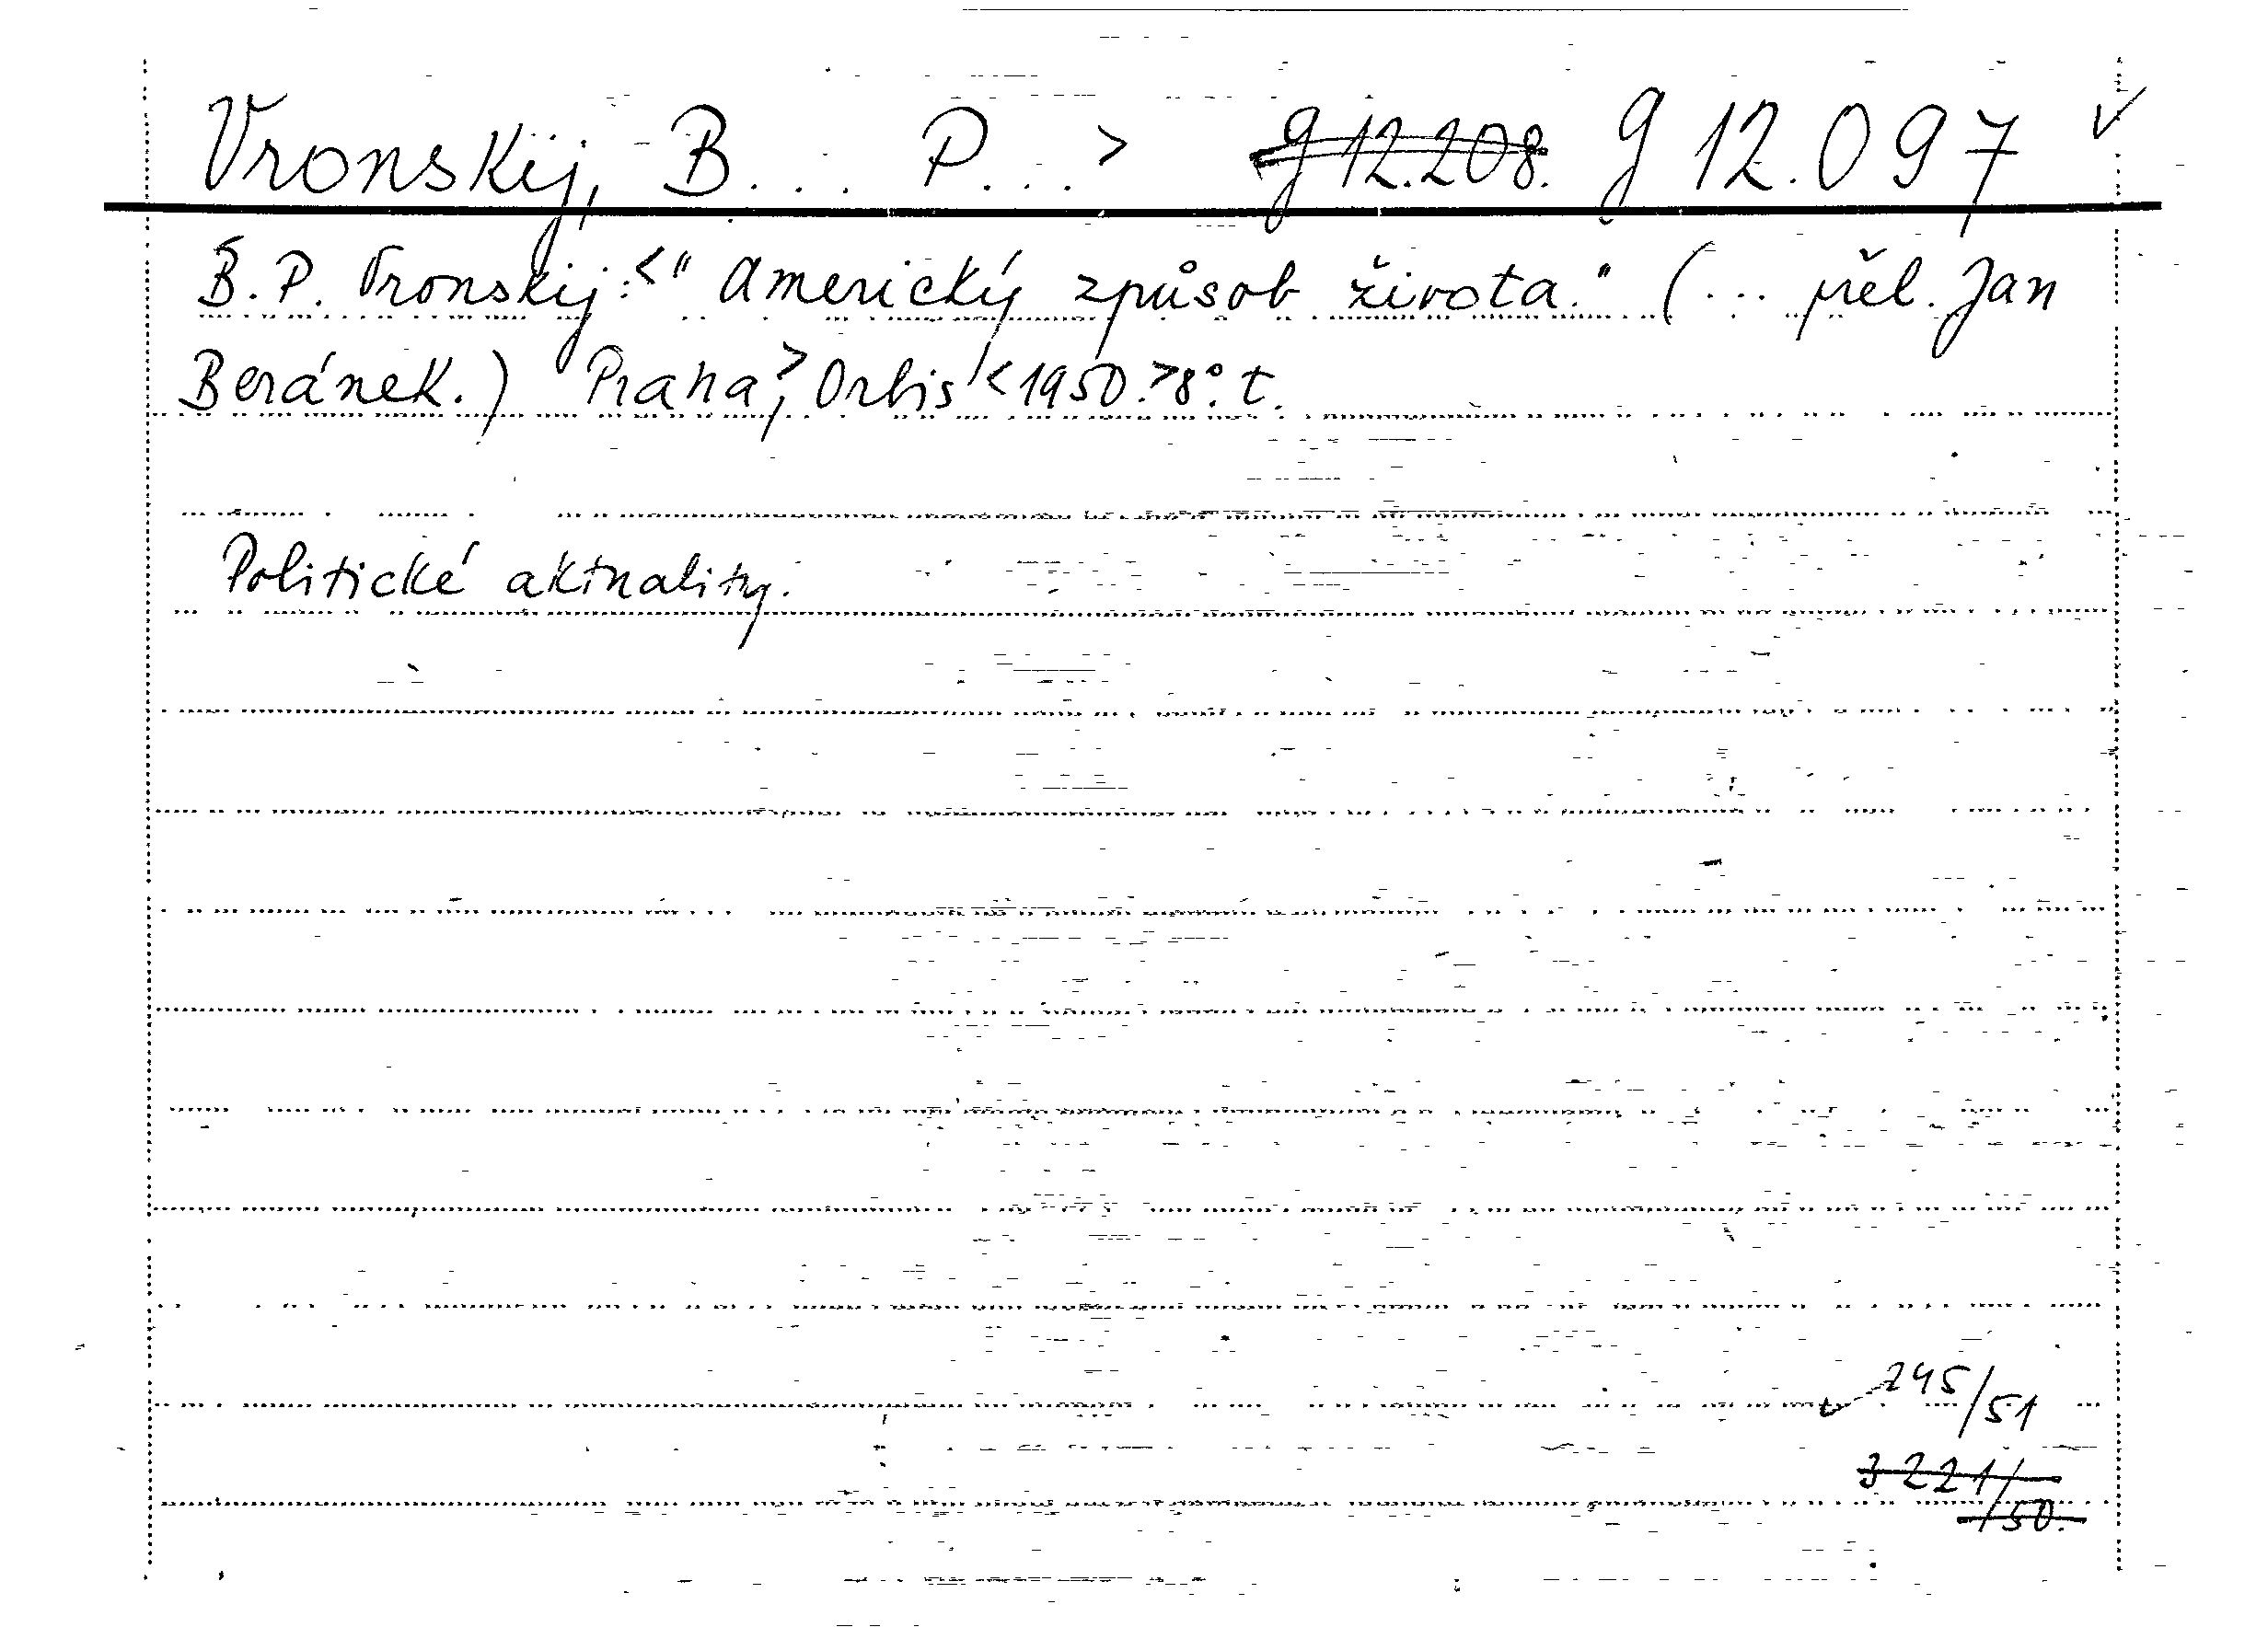 Vronskij, B... P...> g 12.208. g 12.097 ✓
B.P. Vronskij:<" Americký způsob života." (... přel. Jan
Beránek.) Praha,> Orbis <1950.>8°. t.
Politické aktuality.
245/51
3221/50.